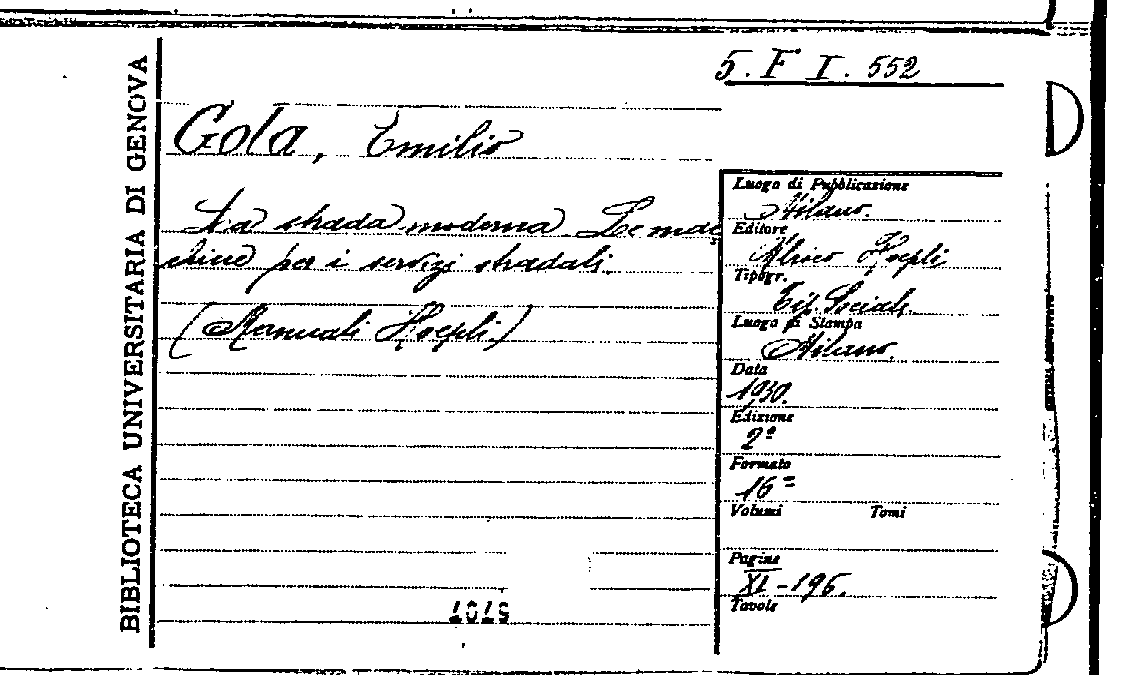 BIBLIOTECA UNIVERSITARIA DI GENOVA
5. F I. 552
Gola, Emilio
La strada moderna Le mac
chine per i servizi stradali.
(Manuali Hoepli)
Luogo di Pubblicazione
Milano.
Editore
Ulrico Hoepli
Tipogr.
Tip. Sociale.
Luogo di Stampa
Milano.
Data
1930.
Edizione
2ª
Formato
16=
Volumi Tomi
Pagine
XI-196.
Tavole